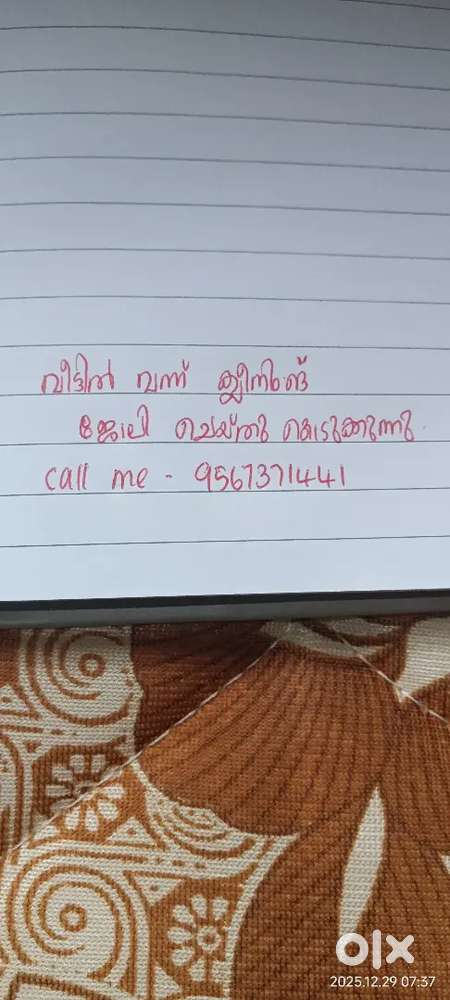 വീട്ടിൽ വന്ന് ക്ലീനിംങ്ങ്
ജോലി ചെയ്തു കൊടുക്കുന്നു.
call me - 9567371441
olx
2025.12.29 07:37